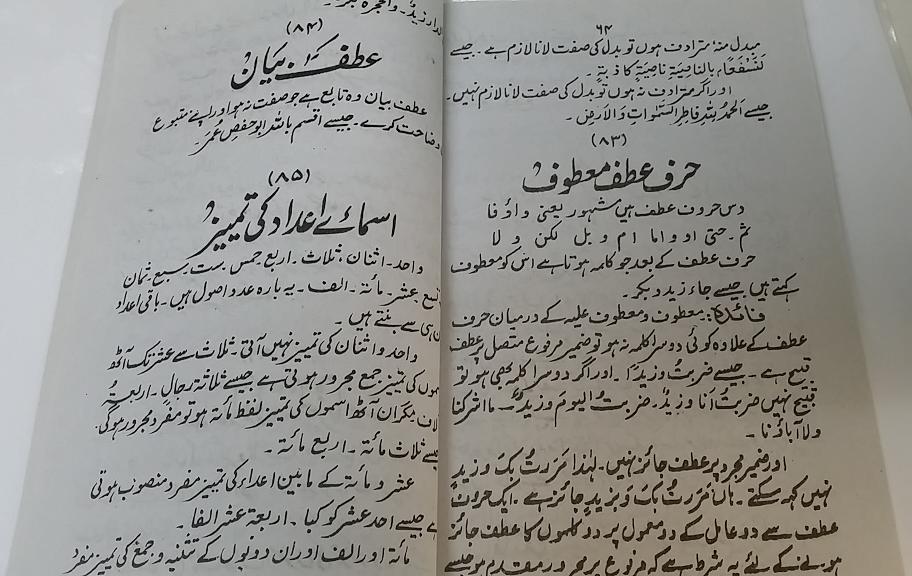 ۶۴
مبدل منہ مترادف ہوں تو بدل کی صفت لانا لازم ہے ۔ جیسے
لَنَسْفَعًا بِالنَّاصِيَةِ نَاصِيَةٍ كَاذِبَةٍ ۔
اور اگر مترادف نہ ہوں تو بدل کی صفت لانا لازم نہیں۔
جیسے اَلحَمْدُ لِلّٰہِ فَاطِرِ السَّمٰوَاتِ وَالْاَرْضِ ۔
(۸۳)
حرف عطف معطوف
دس حروف عطف ہیں مشہور یعنی واؤ فا
ثم ۔ حتی او و اما ام و بل لکن و لا
حرف عطف کے بعد جو کلمہ ہوتا ہے اس کو معطوف
کہتے ہیں جیسے جاء زید و بکر ۔
فائدہ: معطوف و معطوف علیہ کے درمیان حرف
عطف کے علاوہ کوئی دوسرا کلمہ نہ ہو تو ضمیر مرفوع متصل پر عطف
قبیح ہے ۔ جیسے ضربتُ و زیدٌ ۔ اور اگر دوسرا کلمہ بھی ہو تو
قبیح نہیں ضربتُ اَنا و زیدٌ ۔ ضربتُ الیومَ و زیدٌ ۔ ما اشرکنا
ولا آباؤنا ۔
اور ضمیر مجرور پر عطف جائز نہیں ۔ لہٰذا مَرَرتُ بِکَ و زیدٍ
نہیں کہہ سکتے ۔ ہاں مَرَرتُ بِکَ وَ بِزیدٍ جائز ہے ۔ ایک حروف
عطف سے دو عامل کے دو معمول پر دو کلموں کا عطف جائز
ہونے کے لئے یہ شرط ہے کہ مرفوع پر مجرور مقدم ہو جیسے
الدار زیدٌ ۔ والحجرۃ
(۸۴)
عطف بیان
عطف بیان وہ تابع ہے جو صفت نہ ہو اور اپنے متبوع
وضاحت کرے ۔ جیسے اقسم باللہ ابو حفصٍ عُمَر ۔
(۸۵)
اسمائے اعداد کی تمییز
واحد ۔ اثنان ۔ ثلاث ۔ اربع خمس ۔ ست سبع ثمان
تسع عشر ۔ مائة ۔ الف ۔ یہ بارہ عدد اصول ہیں ۔ باقی اعداد
ان ہی سے بنتے ہیں ۔
واحد و اثنان کی تمییز نہیں آتی ۔ ثلاث سے عشر تک آٹھ
اسموں کی تمییز جمع مجرور ہوتی ہے جیسے ثلاثة رجالٍ ۔ اربعةُ
لیکن ان آٹھ اسموں کی تمییز لفظ مائة ہو تو مفرد مجرور ہوگی
جیسے ثلاث مائة ۔ اربع مائة ۔
عشر و مائة کے مابین اعداد کی تمییز مفرد منصوب ہوتی
ہے جیسے احد عشر کوکبا ۔ اربعة عشر الفا ۔
مائة اور الف اور ان دونوں کے تثنیہ و جمع کی تمییز مفرد